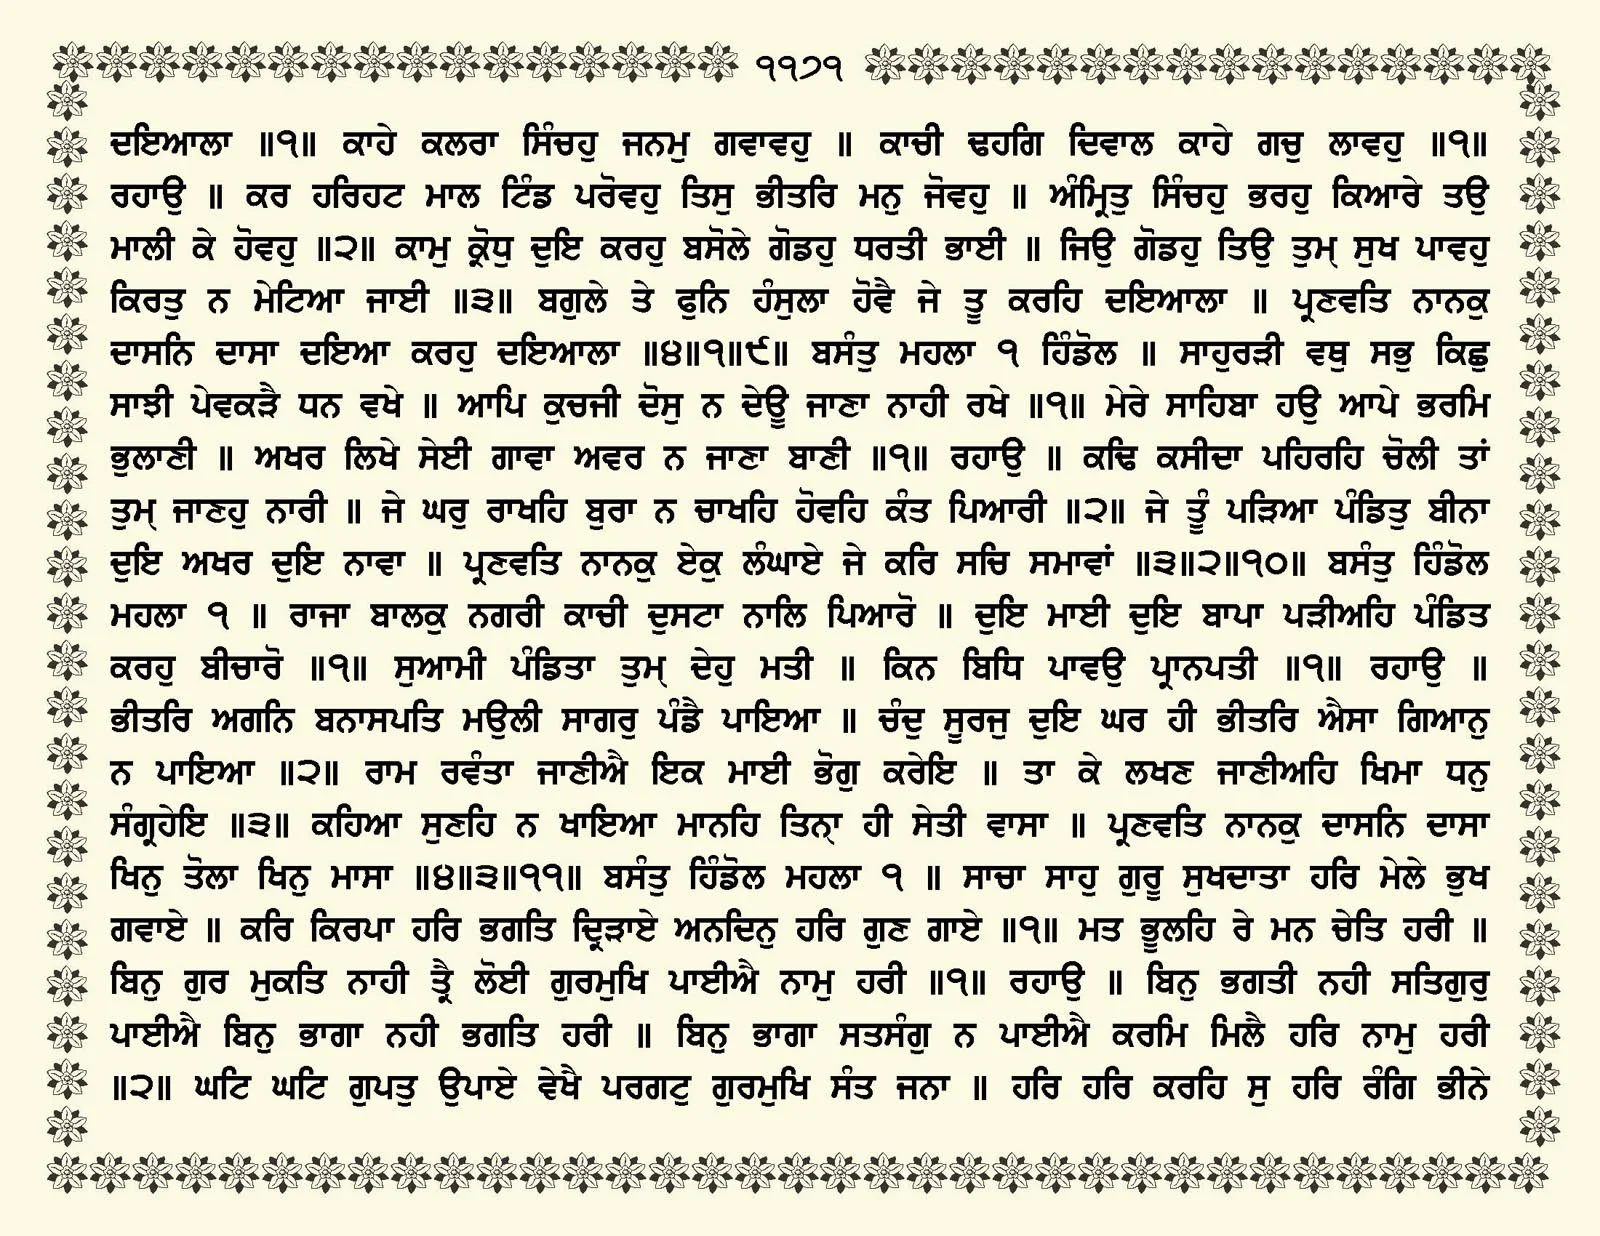 ੧੧੭੧
ਦਇਆਲਾ ॥੧॥ ਕਾਹੇ ਕਲਰਾ ਸਿੰਚਹੁ ਜਨਮੁ ਗਵਾਵਹੁ ॥ ਕਾਚੀ ਢਹਗਿ ਦਿਵਾਲ ਕਾਹੇ ਗਚੁ ਲਾਵਹੁ ॥੧॥
ਰਹਾਉ ॥ ਕਰ ਹਰਿਹਟ ਮਾਲ ਟਿੰਡ ਪਰੋਵਹੁ ਤਿਸੁ ਭੀਤਰਿ ਮਨੁ ਜੋਵਹੁ ॥ ਅੰਮ੍ਰਿਤੁ ਸਿੰਚਹੁ ਭਰਹੁ ਕਿਆਰੇ ਤਉ
ਮਾਲੀ ਕੇ ਹੋਵਹੁ ॥੨॥ ਕਾਮੁ ਕ੍ਰੋਧੁ ਦੁਇ ਕਰਹੁ ਬਸੋਲੇ ਗੋਡਹੁ ਧਰਤੀ ਭਾਈ ॥ ਜਿਉ ਗੋਡਹੁ ਤਿਉ ਤੁਮ੍ ਸੁਖ ਪਾਵਹੁ
ਕਿਰਤੁ ਨ ਮੇਟਿਆ ਜਾਈ ॥੩॥ ਬਗੁਲੇ ਤੇ ਫੁਨਿ ਹੰਸੁਲਾ ਹੋਵੈ ਜੇ ਤੂ ਕਰਹਿ ਦਇਆਲਾ ॥ ਪ੍ਰਣਵਤਿ ਨਾਨਕੁ
ਦਾਸਨਿ ਦਾਸਾ ਦਇਆ ਕਰਹੁ ਦਇਆਲਾ ॥੪॥੧॥੯॥ ਬਸੰਤੁ ਮਹਲਾ ੧ ਹਿੰਡੋਲ ॥ ਸਾਹੁਰੜੀ ਵਥੁ ਸਭੁ ਕਿਛੁ
ਸਾਝੀ ਪੇਵਕੜੈ ਧਨ ਵਖੇ ॥ ਆਪਿ ਕੁਚਜੀ ਦੋਸੁ ਨ ਦੇਊ ਜਾਣਾ ਨਾਹੀ ਰਖੇ ॥੧॥ ਮੇਰੇ ਸਾਹਿਬਾ ਹਉ ਆਪੇ ਭਰਮਿ
ਭੁਲਾਣੀ ॥ ਅਖਰ ਲਿਖੇ ਸੇਈ ਗਾਵਾ ਅਵਰ ਨ ਜਾਣਾ ਬਾਣੀ ॥੧॥ ਰਹਾਉ ॥ ਕਢਿ ਕਸੀਦਾ ਪਹਿਰਹਿ ਚੋਲੀ ਤਾਂ
ਤੁਮ੍ ਜਾਣਹੁ ਨਾਰੀ ॥ ਜੇ ਘਰੁ ਰਾਖਹਿ ਬੁਰਾ ਨ ਚਾਖਹਿ ਹੋਵਹਿ ਕੰਤ ਪਿਆਰੀ ॥੨॥ ਜੇ ਤੂੰ ਪੜਿਆ ਪੰਡਿਤੁ ਬੀਨਾ
ਦੁਇ ਅਖਰ ਦੁਇ ਨਾਵਾ ॥ ਪ੍ਰਣਵਤਿ ਨਾਨਕੁ ਏਕੁ ਲੰਘਾਏ ਜੇ ਕਰਿ ਸਚਿ ਸਮਾਵਾਂ ॥੩॥੨॥੧੦॥ ਬਸੰਤੁ ਹਿੰਡੋਲ
ਮਹਲਾ ੧ ॥ ਰਾਜਾ ਬਾਲਕੁ ਨਗਰੀ ਕਾਚੀ ਦੁਸਟਾ ਨਾਲਿ ਪਿਆਰੋ ॥ ਦੁਇ ਮਾਈ ਦੁਇ ਬਾਪਾ ਪੜੀਅਹਿ ਪੰਡਿਤ
ਕਰਹੁ ਬੀਚਾਰੋ ॥੧॥ ਸੁਆਮੀ ਪੰਡਿਤਾ ਤੁਮ੍ ਦੇਹੁ ਮਤੀ ॥ ਕਿਨ ਬਿਧਿ ਪਾਵਉ ਪ੍ਰਾਨਪਤੀ ॥੧॥ ਰਹਾਉ ॥
ਭੀਤਰਿ ਅਗਨਿ ਬਨਾਸਪਤਿ ਮਉਲੀ ਸਾਗਰੁ ਪੰਡੈ ਪਾਇਆ ॥ ਚੰਦੁ ਸੂਰਜੁ ਦੁਇ ਘਰ ਹੀ ਭੀਤਰਿ ਐਸਾ ਗਿਆਨੁ
ਨ ਪਾਇਆ ॥੨॥ ਰਾਮ ਰਵੰਤਾ ਜਾਣੀਐ ਇਕ ਮਾਈ ਭੋਗੁ ਕਰੇਇ ॥ ਤਾ ਕੇ ਲਖਣ ਜਾਣੀਅਹਿ ਖਿਮਾ ਧਨੁ
ਸੰਗ੍ਰਹੇਇ ॥੩॥ ਕਹਿਆ ਸੁਣਹਿ ਨ ਖਾਇਆ ਮਾਨਹਿ ਤਿਨ੍ਾ ਹੀ ਸੇਤੀ ਵਾਸਾ ॥ ਪ੍ਰਣਵਤਿ ਨਾਨਕੁ ਦਾਸਨਿ ਦਾਸਾ
ਖਿਨੁ ਤੋਲਾ ਖਿਨੁ ਮਾਸਾ ॥੪॥੩॥੧੧॥ ਬਸੰਤੁ ਹਿੰਡੋਲ ਮਹਲਾ ੧ ॥ ਸਾਚਾ ਸਾਹੁ ਗੁਰੂ ਸੁਖਦਾਤਾ ਹਰਿ ਮੇਲੇ ਭੁਖ
ਗਵਾਏ ॥ ਕਰਿ ਕਿਰਪਾ ਹਰਿ ਭਗਤਿ ਦ੍ਰਿੜਾਏ ਅਨਦਿਨੁ ਹਰਿ ਗੁਣ ਗਾਏ ॥੧॥ ਮਤ ਭੂਲਹਿ ਰੇ ਮਨ ਚੇਤਿ ਹਰੀ ॥
ਬਿਨੁ ਗੁਰ ਮੁਕਤਿ ਨਾਹੀ ਤ੍ਰੈ ਲੋਈ ਗੁਰਮੁਖਿ ਪਾਈਐ ਨਾਮੁ ਹਰੀ ॥੧॥ ਰਹਾਉ ॥ ਬਿਨੁ ਭਗਤੀ ਨਹੀ ਸਤਿਗੁਰੁ
ਪਾਈਐ ਬਿਨੁ ਭਾਗਾ ਨਹੀ ਭਗਤਿ ਹਰੀ ॥ ਬਿਨੁ ਭਾਗਾ ਸਤਸੰਗੁ ਨ ਪਾਈਐ ਕਰਮਿ ਮਿਲੈ ਹਰਿ ਨਾਮੁ ਹਰੀ
॥੨॥ ਘਟਿ ਘਟਿ ਗੁਪਤੁ ਉਪਾਏ ਵੇਖੈ ਪਰਗਟੁ ਗੁਰਮੁਖਿ ਸੰਤ ਜਨਾ ॥ ਹਰਿ ਹਰਿ ਕਰਹਿ ਸੁ ਹਰਿ ਰੰਗਿ ਭੀਨੇ